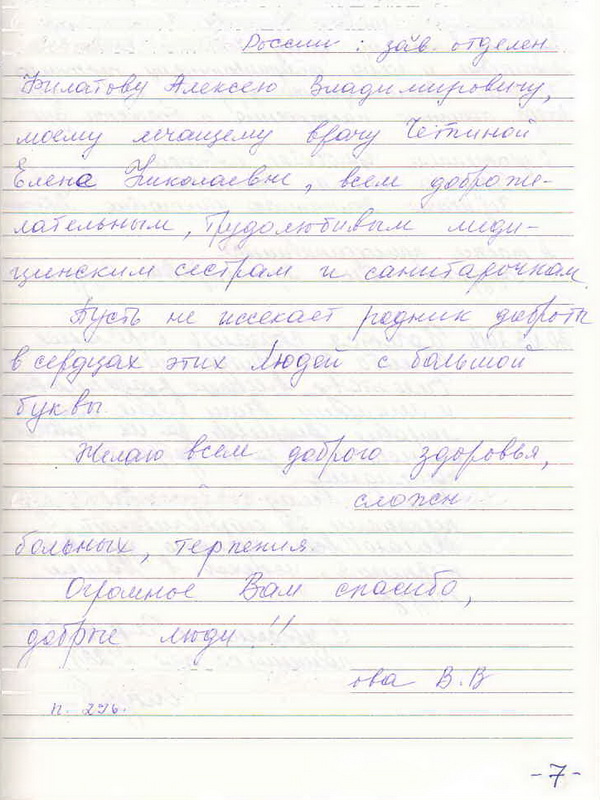 России : зав. отделен
Филатову Алексею Владимировичу,
моему лечащему врачу Четиной
Елене Николаевне, всем доброже-
лательным, трудолюбивым меди-
цинским сестрам и санитарочкам.
Пусть не иссекает родник доброты
в сердцах этих Людей с большой
буквы
Желаю всем доброго здоровья,
сложн
больных, терпения.
Огромное Вам спасибо,
добрые люди!!
ова В.В
п. 296.
-7-